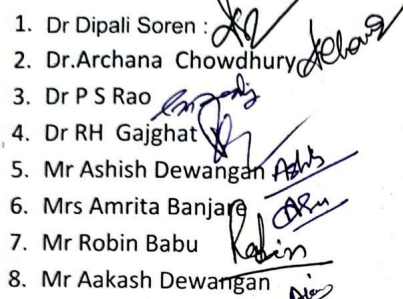 1. Dr Dipali Soren :
2. Dr.Archana Chowdhury
3. Dr P S Rao
4. Dr RH Gajghat
5. Mr Ashish Dewangan Ashis
6. Mrs Amrita Banjare
7. Mr Robin Babu Robin
8. Mr Aakash Dewangan